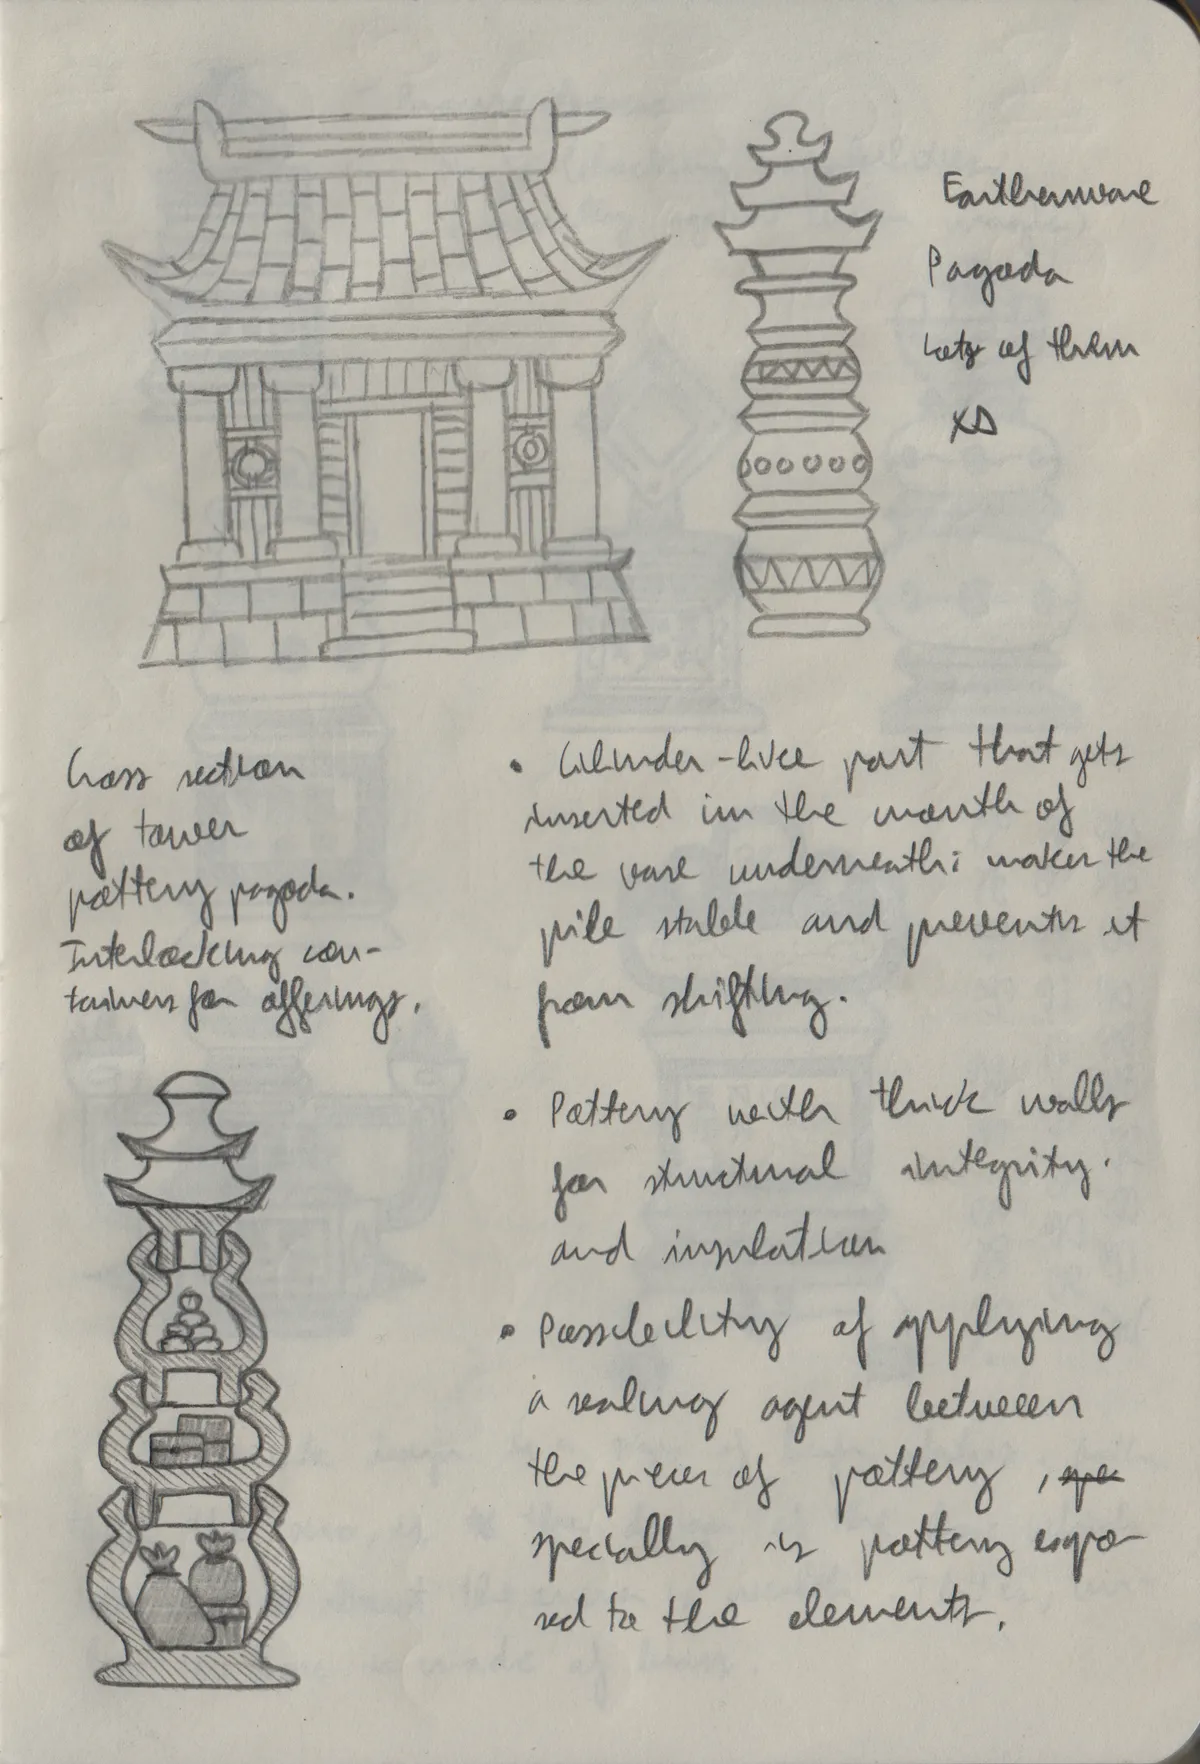 Earthenware
Pagoda
Lots of them
XD
Cross section
of tower
pottery pagoda.
Interlocking con-
tainers for offerings.
• Cilinder-like part that gets
inserted in the mouth of
the vase underneath: makes the
pile stable and prevents it
from shifting.
• Pottery with thick walls
for structural integrity.
and insulation
• Possibility of applying
a sealing agent between
the pieces of pottery,
specially is pottery expo-
sed to the elements.